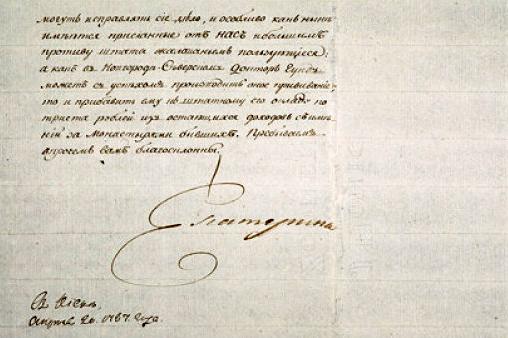 могутъ исправлять сіе дѣло, и особливо какъ нынѣ
имѣются присланные отъ насъ и большимъ
противу штата жалованьемъ пользующіеся;
а какъ въ Новгородѣ-Сѣверскомъ Докторъ
можетъ съ успѣхомъ производить оное прививаніе,
то и прибавить ему къ штатному его окладу по
триста рублей изъ доходовъ съ имѣ-
ній за Монастырями бывшихъ. Пребываемъ
впрочемъ вамъ благосклонны.
Екатерина
Въ Кіевѣ,
Апрѣля 20. 1787. года.